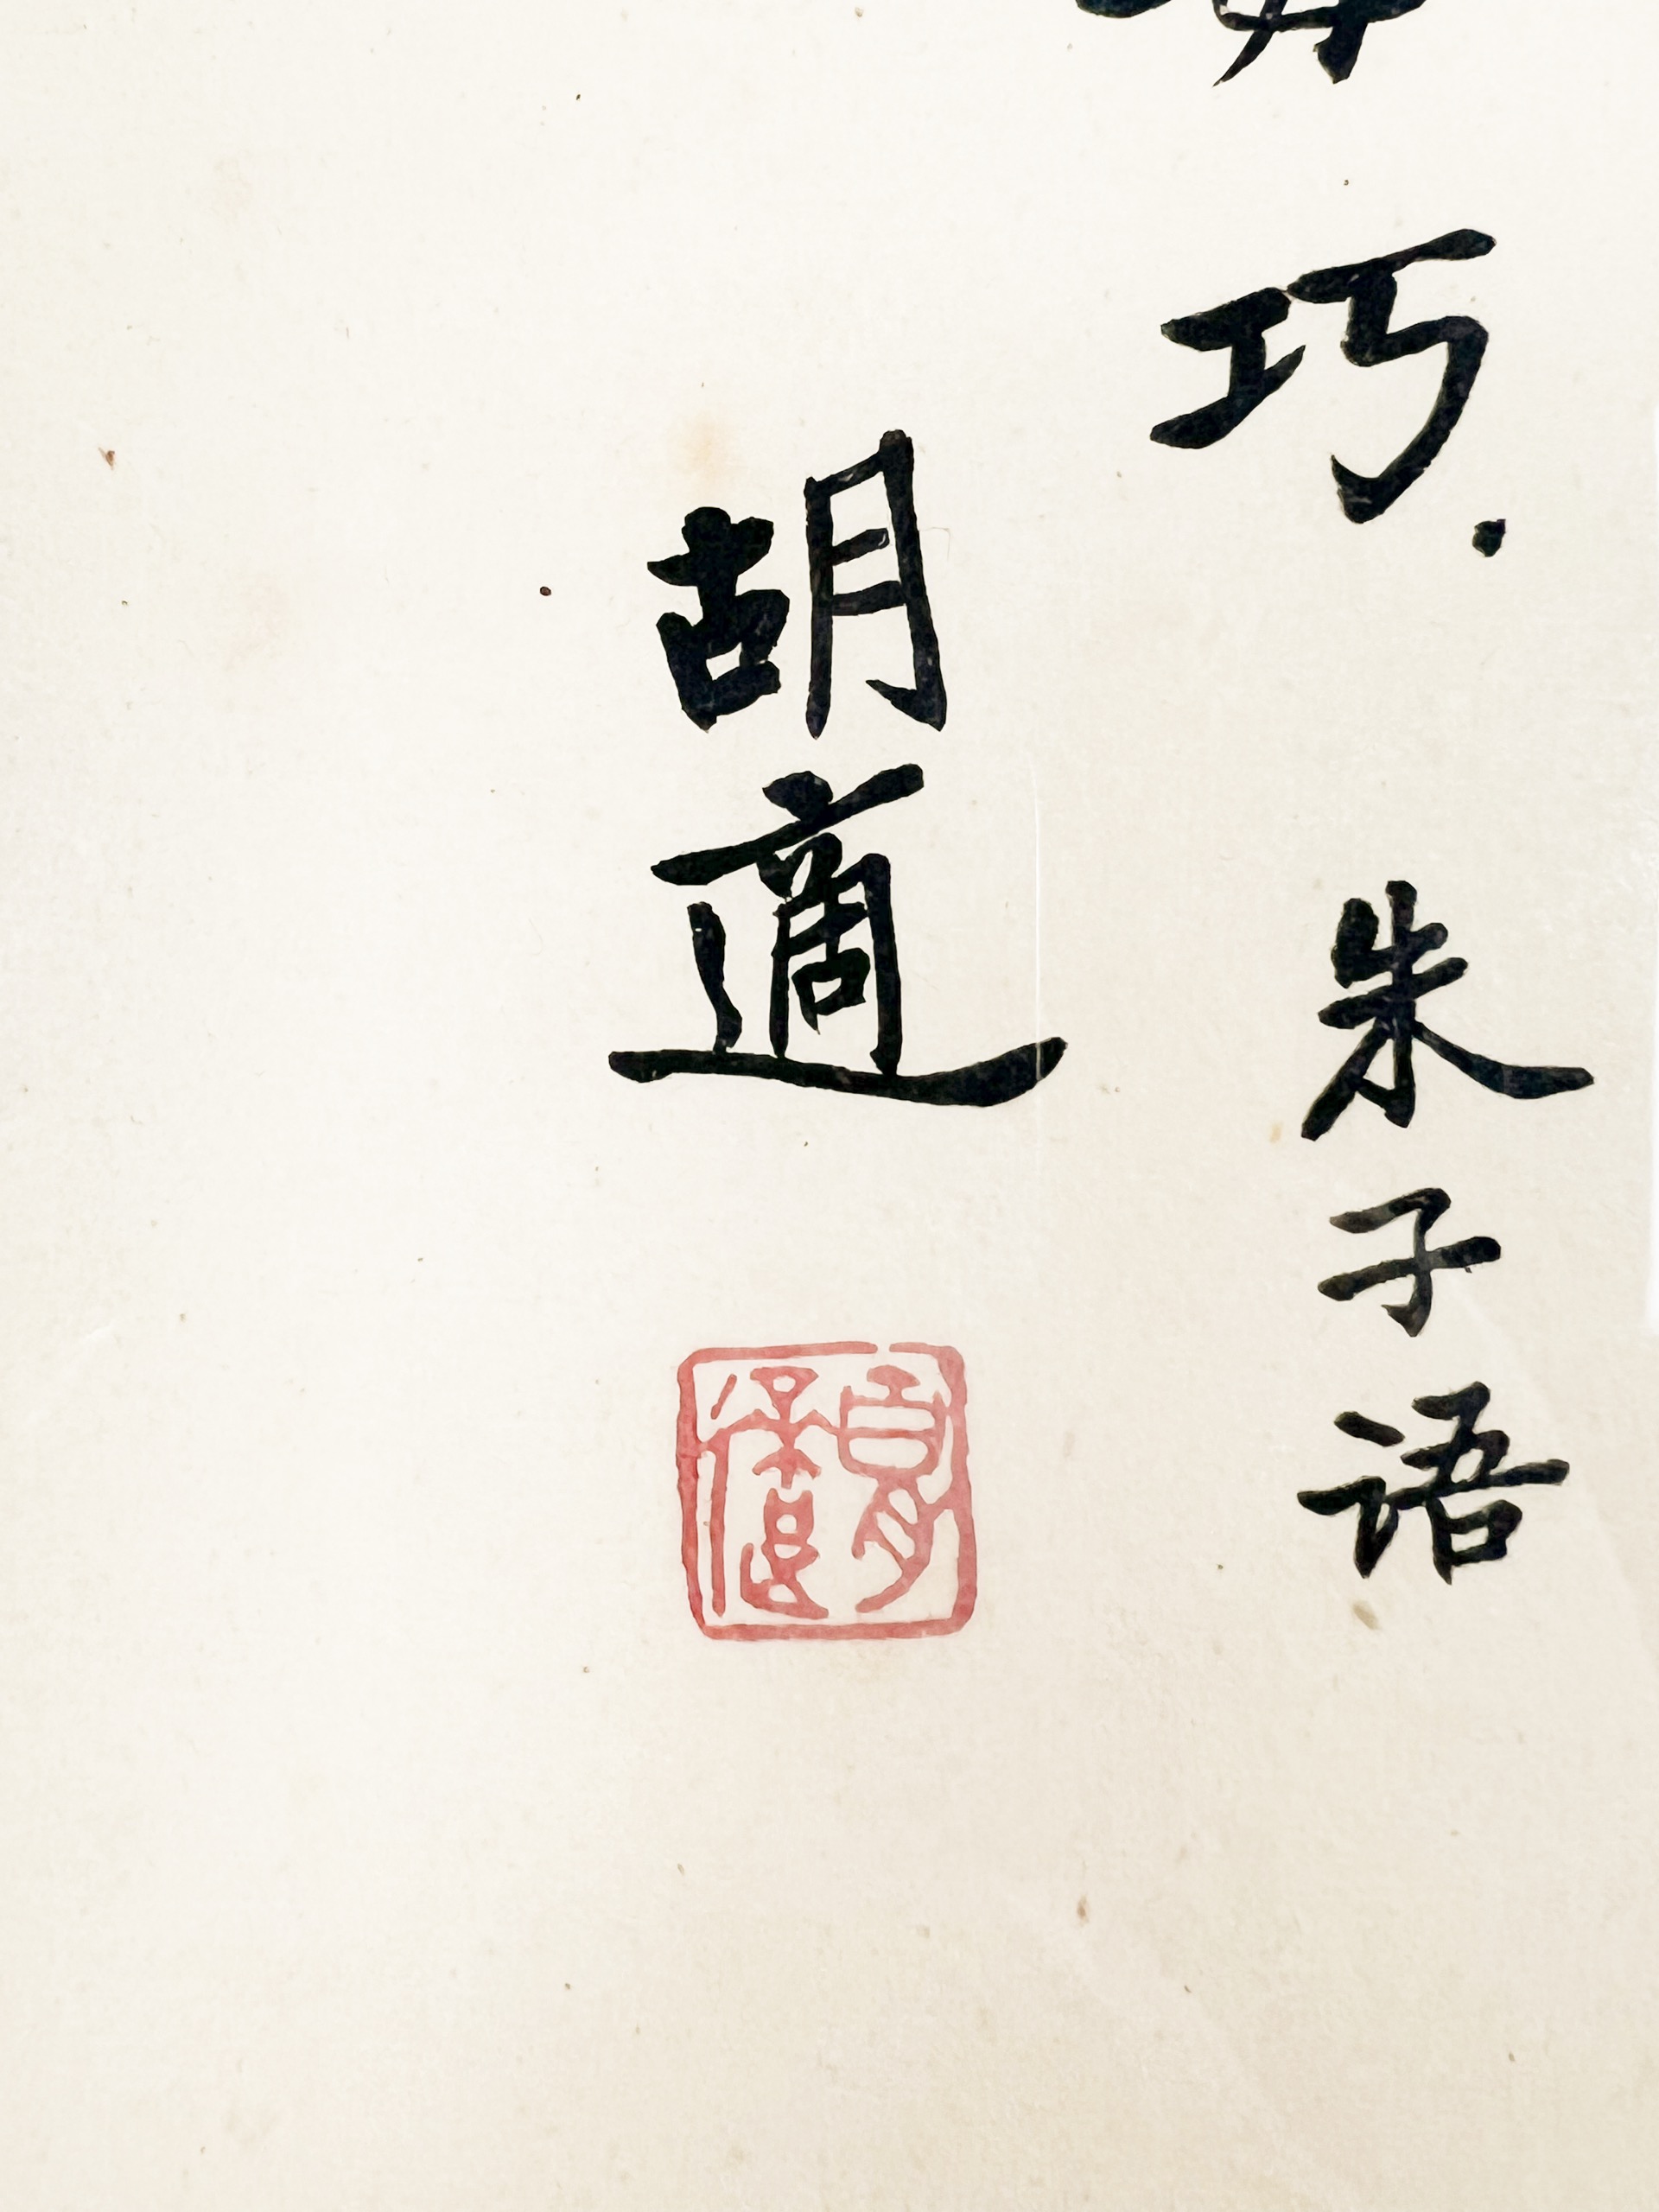 巧. 朱子语
胡適
胡適